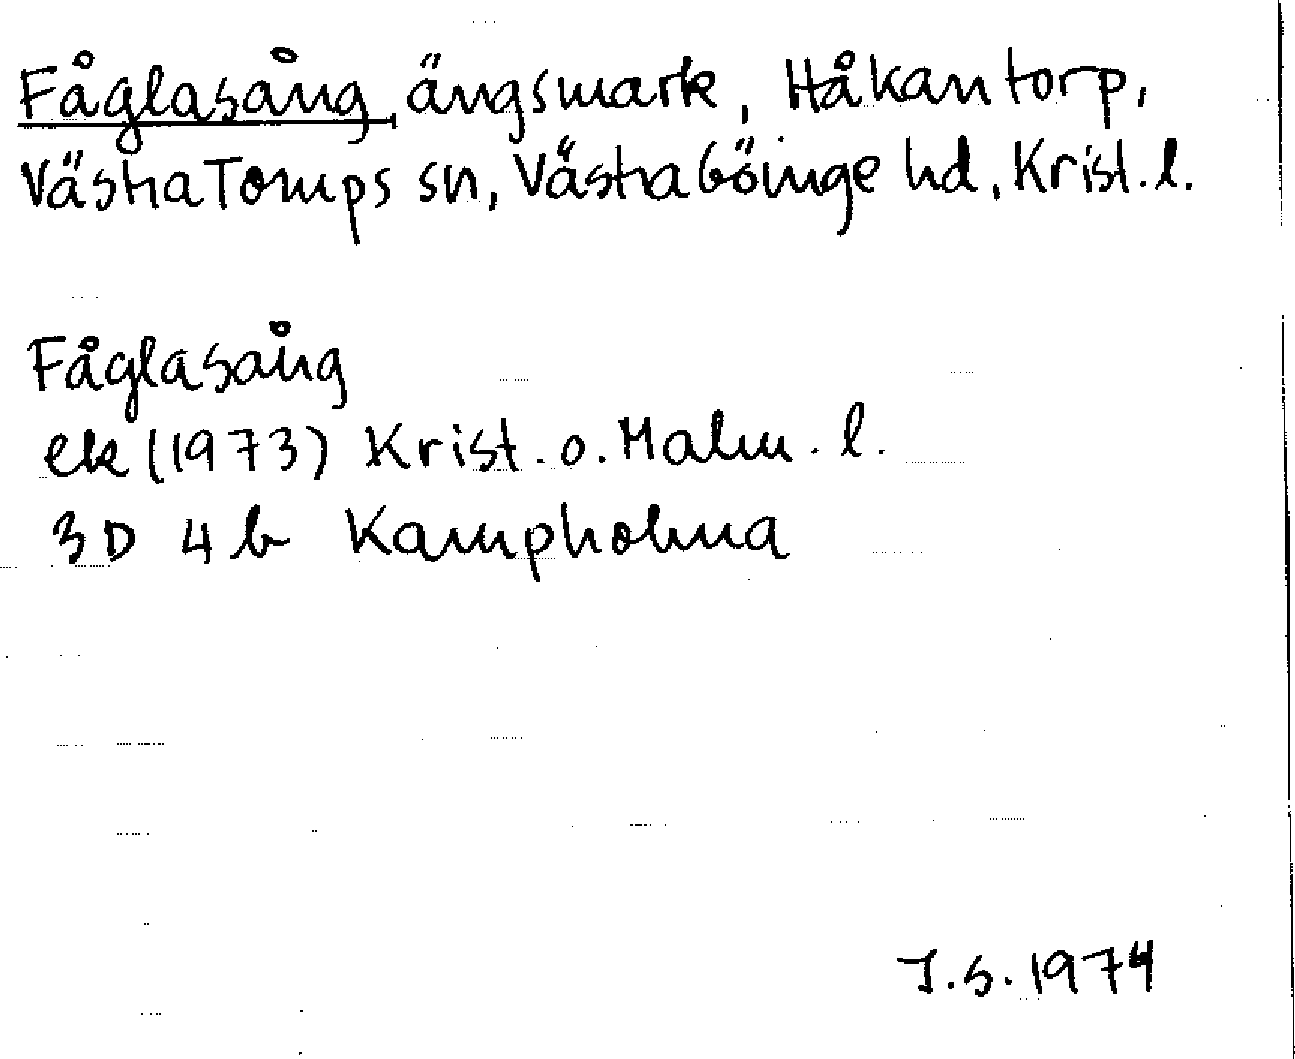 Fåglasång, ängsmark, Håkantorp,
Västra Torups sn, Västra Göinge hd, Krist. l.
Fåglasång
ek (1973) Krist. o. Malm. l.
3D 4b Kampholma
J.S. 1974